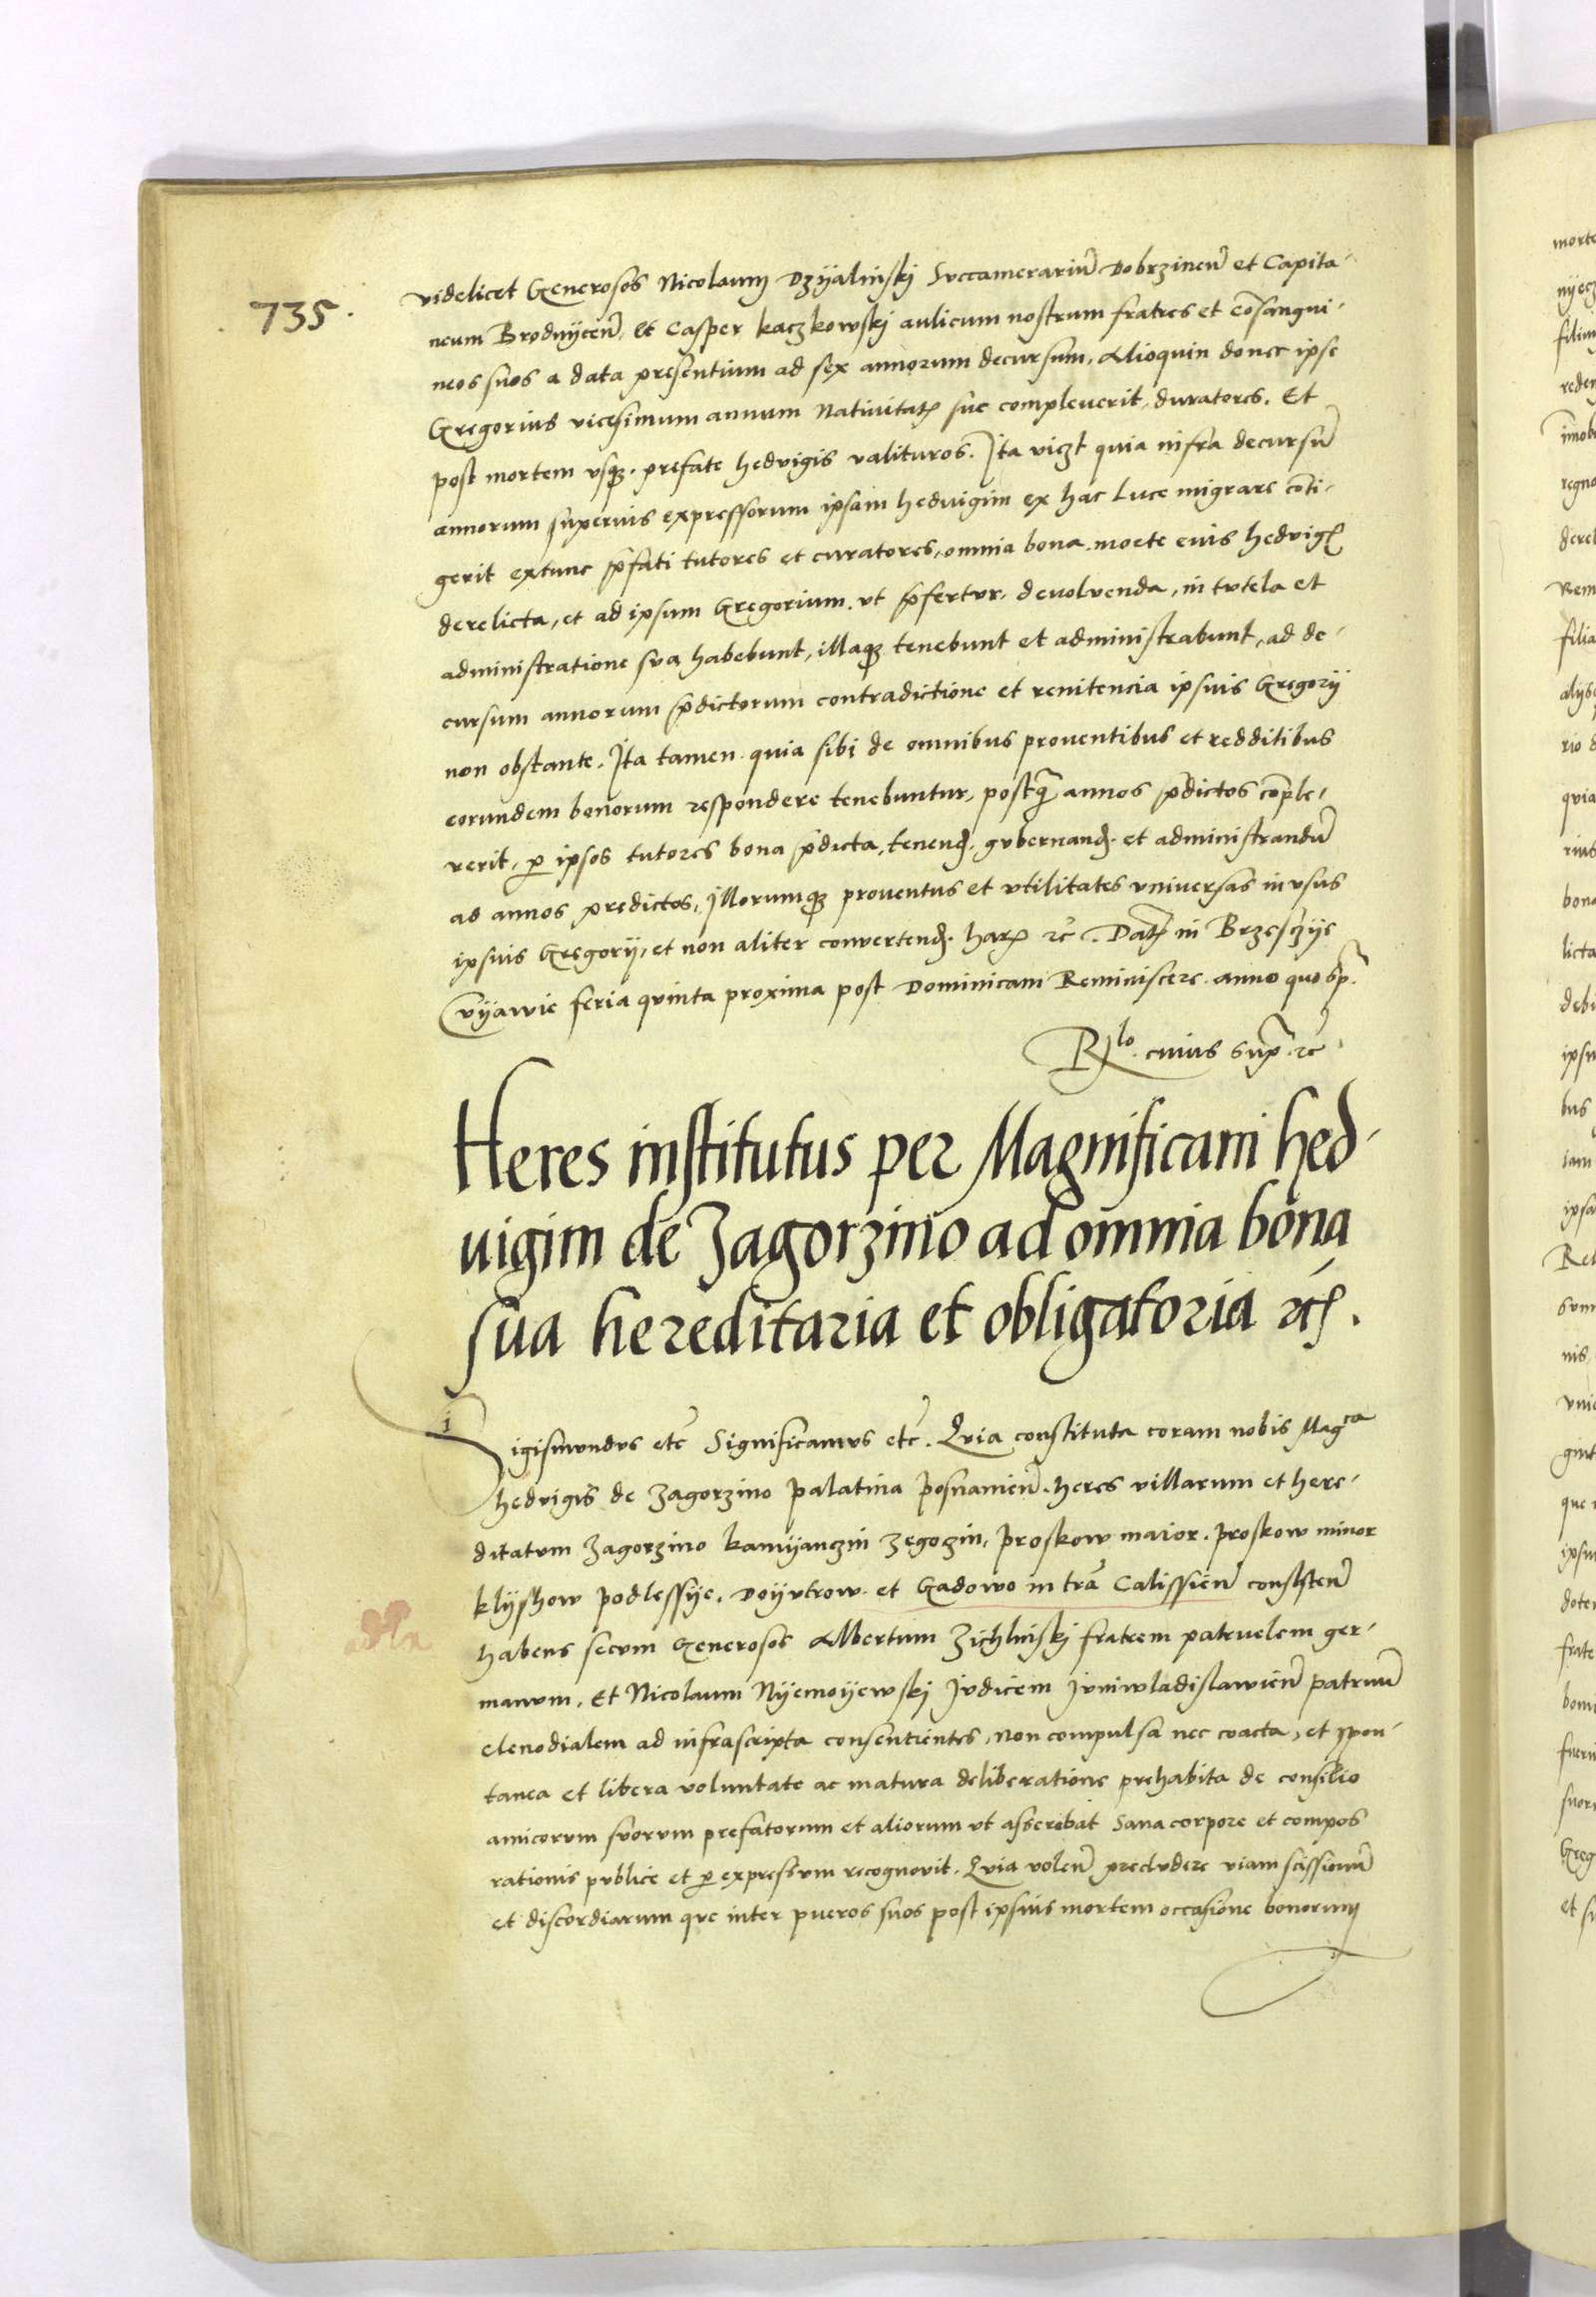 735.
videlicet Generosos Nicolaum Dzyalinskj Succamerariu͂ Dobrzinen͂ et Capita-
neum Brodnycen͂. Et Casper kaczkowskj aulicum nostrum fratres et co͂sangui-
neos suos a data presentium ad sex annorum decursum, Alioquin donec ipse
Gregorius vicesimum annum Nativitatꝭ sue compleuerit, duratores. Et
post mortem vsqꝫ. prefate hedvigis valituros. Ita viczt quia infra decursu͂
annorum superius expressorum ipsam heduigim ex hac Luce migrare co͂ti-
gerit extunc p͂fati tutores et curatores, omnia bona. morte eius hedvigꝭ
derelicta, et ad ipsum Gregorium. vt p͂fertur. deuoluenda, in tutela et
administratione sua habebunt, illaqꝫ tenebunt et administrabunt, ad de-
cursum annorum p͂dictorum contradictione et renitencia ipsius Gregorij
non obstante. Ita tamen. quia sibi de omnibus prouentibus et redditibus
eorundem bonorum respondere tenebuntur, postq͂ annos p͂dictos co͂ple-
verit, ꝑ ipsos tutores bona p͂dicta, tenend. gubernand. et administrandu͂
ad annos predictos, Illorumqꝫ proventus et vtilitates vniversas in vsus
ipsius Gregorij, et non aliter convertend. harꝭ ꝛc͂. Datꝭ in Brzesczye
Cuyavie feria quinta proxima post Dominicam Reminiscere. anno quo sp͂.
R͂lo. cuius sup͂. ꝛc͂
Heres institutus per Magnificam hed-
uigim de Zagorzino ad omnia bona
sua hereditaria et obligatoria ꝛcꝭ.
Sigismundus etc͂ Significamus etc͂. Quia constituta coram nobis Magca
hedvigis de Zagorzino palatina posnanien͂. heres villarum et here-
ditatum Zagorzino kamyanczin Zegozin, proskow maior. proskow minor
klyshow podlessye. Doyutrow. et Gadowo in tra͂ Calissien͂ consisten͂
habens secum Generosos Albertum Zichlinskj fratrem patruelem ger-
manum. Et Nicolaum Nyemoyewskj Judicem Juniwladislawien͂ patruu͂
clenodialem ad infrascripta consentientes, non compulsa nec coacta, et spon-
tanea et libera voluntate ac matura deliberatione prehabita de consilio
amicorum suorum prefatorum et aliorum vt asserebat Sana corpore et compos
rationis publice et ꝑ expressum recognovit. Quia volen͂ precludere viam scissionu͂
et discordiarum que inter pueros suos post ipsius mortem occasione bonorum